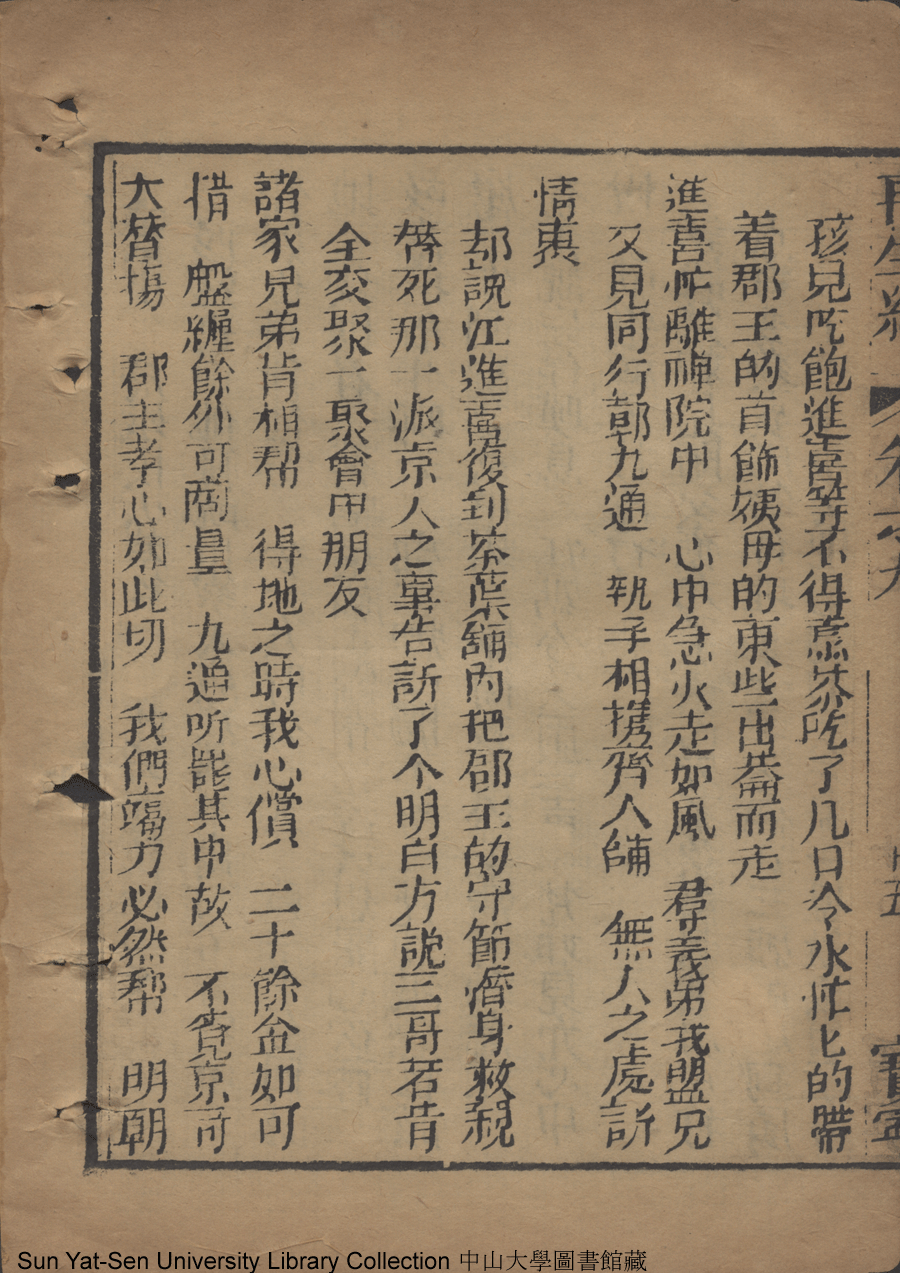 再生緣 卷六 寶寧
孩兒吃飽進喜等不得蒸茶吃了几口冷水忙匕的帶
着郡王的首飾姨母的東些出巷而走
進喜忙離禅院中 心中急火走如風 尋義弟我盟兄
又見同行郭九通 執手相携齊人舖 無人之處訴
情衷
却說江進喜復到茶葉舖內把郡王的守節潛身救親
替死那一派京人之事告訴了个明白方説三哥若肯
全交聚一聚會中朋友
諸家兄弟肯相帮 得地之時我心償 二十餘金如可
借 盤纏餘外可商量 九通听罷其中故 不覺京可
大替揚 郡主孝心如此切 我們竭力必然帮 明朝
Sun Yat-Sen University Library Collection 中山大學圖書館藏